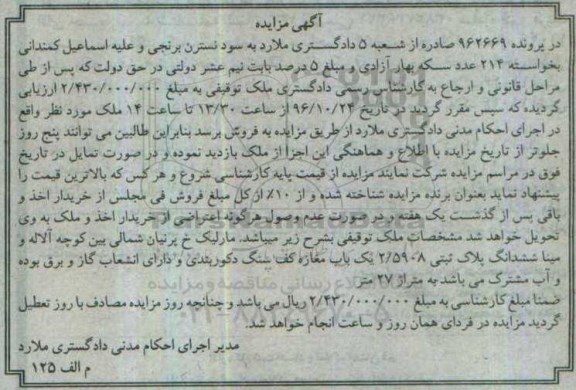 آگهی مزایده
در پرونده ۹۶۲۶۶۹ صادره از شعبه ۵ دادگستری ملارد به سود نسترن برنجی و علیه اسماعیل کمندانی
بخواسته ۲۱۴ عدد سکه بهار آزادی و مبلغ ۵ درصد بابت نیم عشر دولتی در حق دولت که پس از طی
مراحل قانونی و ارجاع به کارشناس رسمی دادگستری ملک توقیفی به مبلغ ۲/۴۳۰/۰۰۰/۰۰۰ ارزیابی
گردیده که سپس مقرر گردید در تاریخ ۹۶/۱۰/۲۴ از ساعت ۱۳/۳۰ تا ساعت ۱۴ ملک مورد نظر واقع
در اجرای احکام مدنی دادگستری ملارد از طریق مزایده به فروش برسد بنابراین طالبین می توانند پنج روز
جلوتر از تاریخ مزایده با اطلاع و هماهنگی این اجرا از ملک بازدید نموده و در صورت تمایل در تاریخ
فوق در مراسم مزایده شرکت نمایند مزایده از قیمت پایه کارشناسی شروع و هر کس که بالاترین قیمت را
پیشنهاد نماید بعنوان برنده مزایده شناخته شده و از ۱۰٪ از کل مبلغ فروش فی مجلس از خریدار اخذ و
باقی پس از گذشت یک هفته و در صورت عدم وصول هرگونه اعتراضی از خریدار اخذ و ملک به وی
تحویل خواهد شد مشخصات ملک توقیفی بشرح زیر میباشد. مارلیک خ پرنیان شمالی بین کوچه آلاله و
مینا ششدانگ پلاک ثبتی ۲/۵۹۰۸ یک باب مغازه کف سنگ دکوربندی و دارای انشعاب گاز و برق بوده
و آب مشترک می باشد به متراژ ۲۷ متر
ضمنا مبلغ کارشناسی به مبلغ ۲/۴۳۰/۰۰۰/۰۰۰ ریال می باشد و چنانچه روز مزایده مصادف با روز تعطیل
گردید مزایده در فردای همان روز و ساعت انجام خواهد شد.
مدیر اجرای احکام مدنی دادگستری ملارد
م الف ۱۲۵